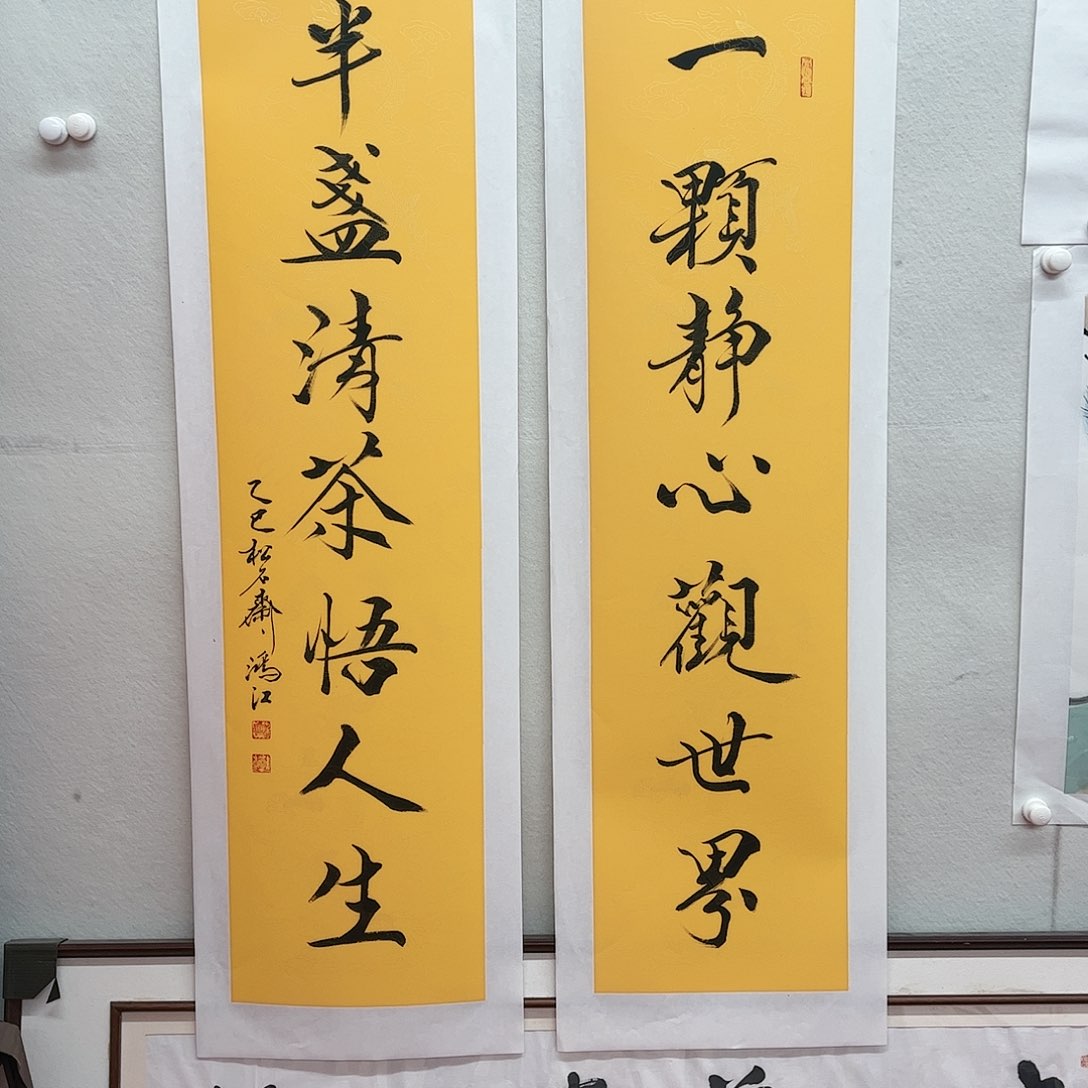 一顆静心觀世界
半盞清茶悟人生
乙巳松石齋鴻江